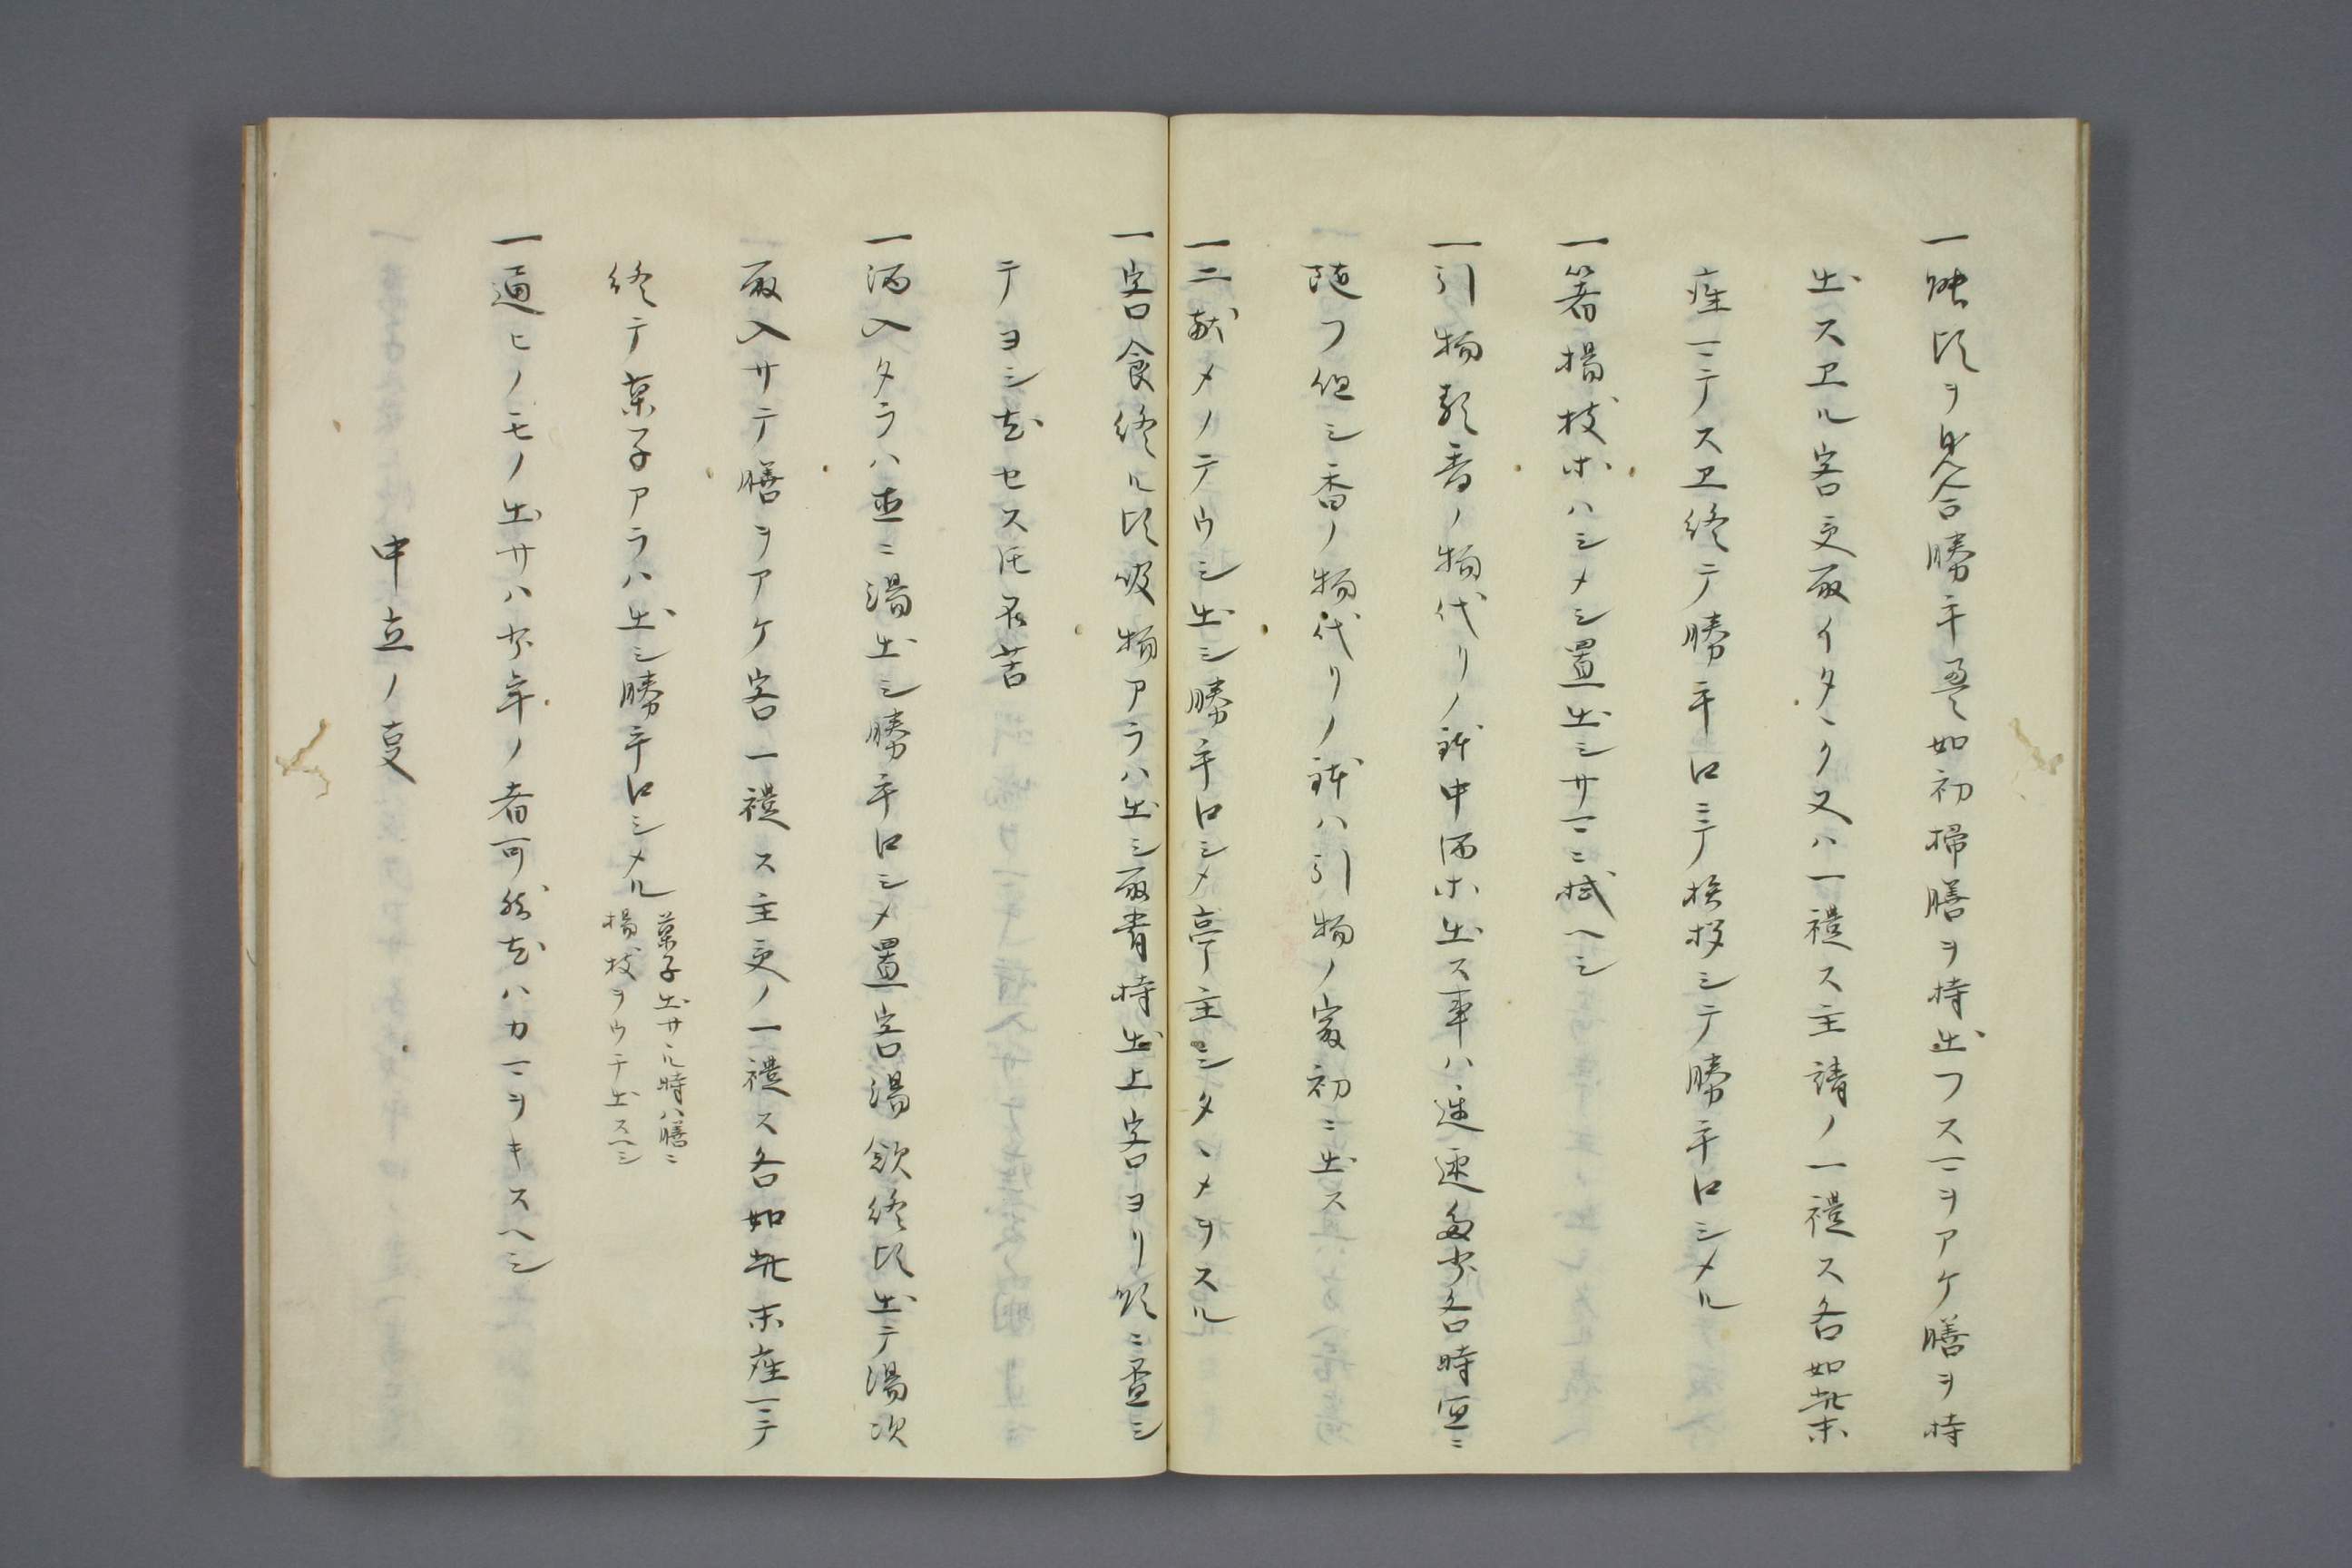 一能比ヲ見合勝手エ如初掃膳ヲ持出フスマヲアケ膳ヲ持
出スヱル客受取イタヽク又ハ一禮ス主請ノ一禮ス各如此末
座マテスヱ終テ勝手口ニテ挨拶シテ勝手口シメル
一箸楊枝ホハシメシ置出シサマニ拭ヘシ
一引物類香ノ物代リノ鉢中酒ホ出ス事ハ遅速多少各時宜ニ
随フ但シ香ノ物代リノ鉢ハ引物ノ最初ニ出ス
一二献メノテウシ出シ勝手口シメ亭主シタヽメヲスル
一客食終ル比吸物アラハ出シ取肴持出上客ヨリ順ニ盃シ
テヨシ尤セス氏不苦
一酒入タラハ直ニ湯出シ勝手口シメ置客湯飲終比出テ湯次
取入サテ膳ヲアケ客一禮ス主受ノ一禮ス各如此末座マテ
終テ菓子アラハ出シ勝手口シメル
菓子出サル時ハ膳ニ
楊枝ヲウチ出スヘシ
一通ヒノモノ出サハ少年ノ者可然尤ハカマヲキスヘシ
中立ノ事